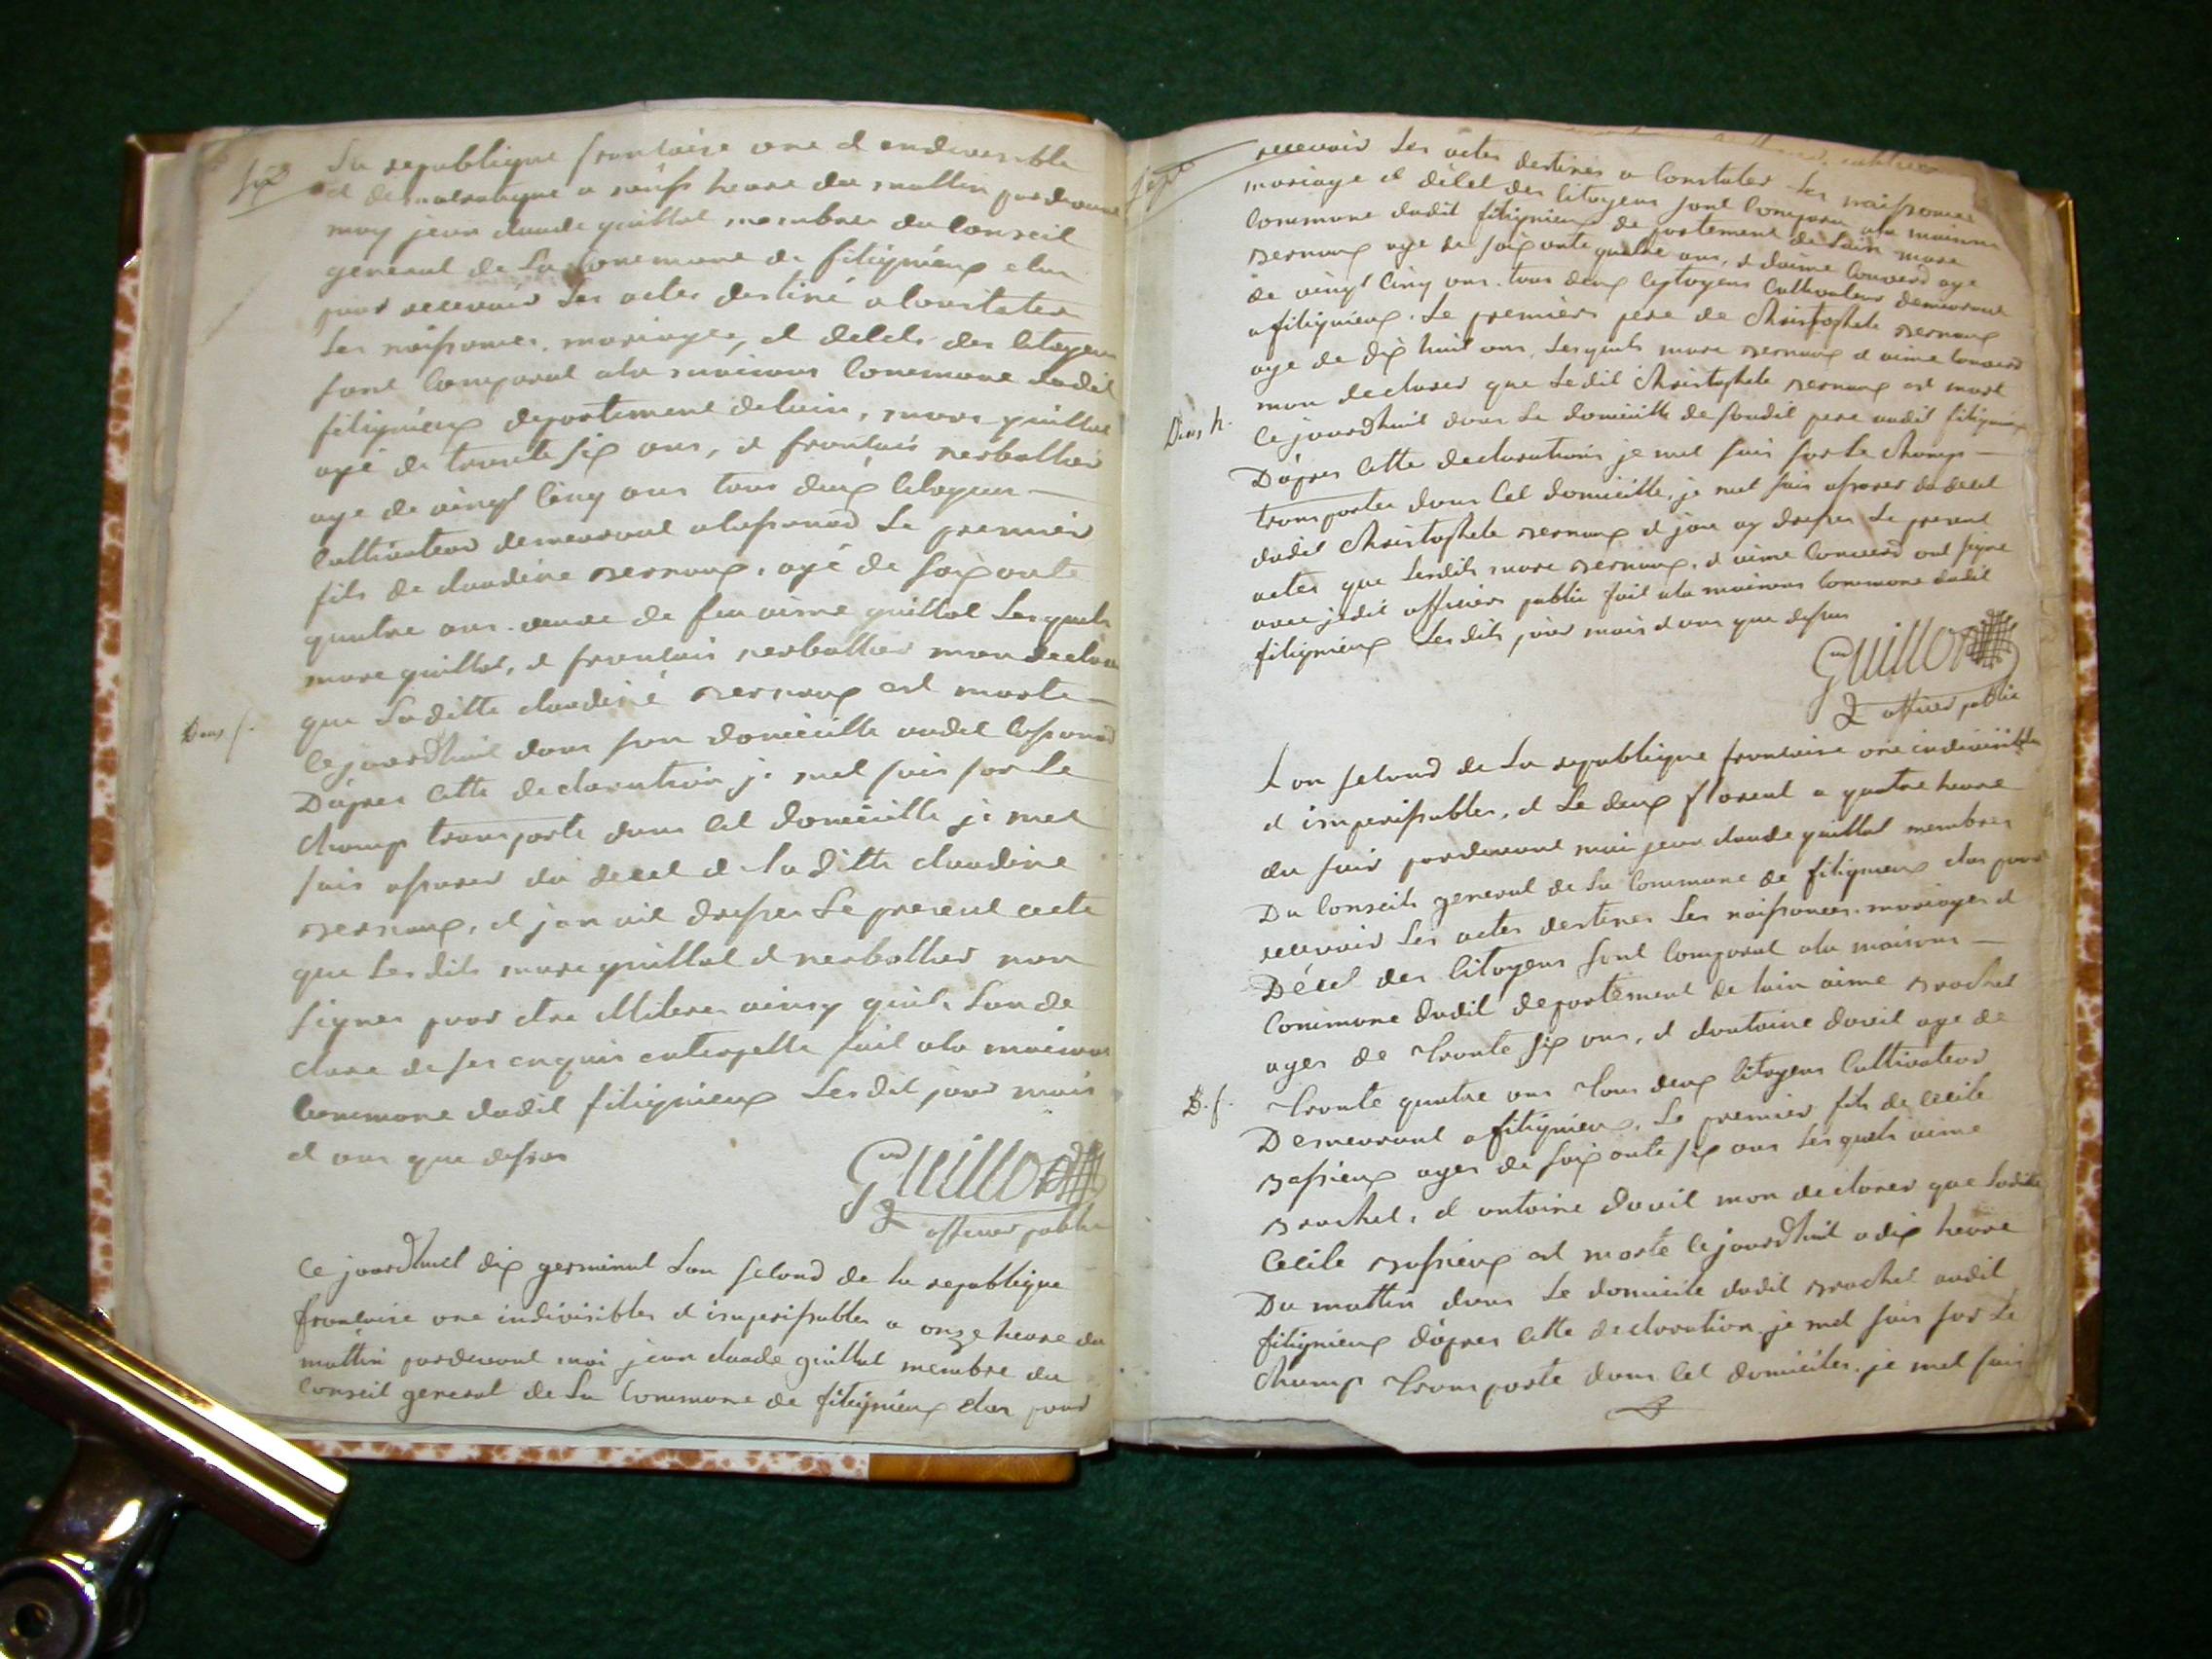 six
La republique francaise une et endivisible
et democratique a neufs heure du mattin pardevant
moy jean claude guillot membres du Conseil
general de La Commune de fitignieux elus
pour recevoir Les actes destiné a Constates
Les naissances, mariages, et decds des Citoyens
sont Comparut ala maison Commune dudit
fitignieux departement delain, marc guillot
agé de trente six ans, et francois nerbollier
age de vingt Cinq ans tous deux Citoyens
Cultivateur demeurant le premier
fils de claudine Bernaux, agé de soixante
quatre ans. veuve de feu aimé guillot Lesquels
marc guillot, et francois nerbollier mon declare
que Laditte claudine Bernaux est morte
Cejourdhuit dans son domicille audit
Deux f.
Dapres Cette declaration je met suis sur Le
champ transporte dans Cet domicille je met
suis assurer du deced de Laditte claudine
Bernaux, et jan ait dresser Le present acte
que Lesdits marc guillot et nerbollier non
signer pour etre illiteres ainsy quils Lon de
clare de ses enquis enterpelle fait ala maison
Commune dudit fitignieux Lesdit jour mois
et ans que dessus
Guillot
officier public
Ce jourdhuit dix germinal Lan second de la republique
francaise une indivisibles et imperissables a onze heure du
mattin pardevant moi jean claude guillot membre du
Conseil general de La Commune de fitignieux elus pour
sept
recevoir Les actes destines a Constates Les naissances
mariage et déced des Citoyens sont Comparu ala maison
Commune dudit fitignieux departement de Lain marc
Bernaux age de soixante quatre ans, et aimé Convers age
de vingt Cinq ans. tous deux Citoyens Cultivateur demeurant
a fitignieux. Le premiers pere de Christophele Bernaux
age de dix huit ans, Lesquels marc Bernaux et aime Convers
mon declarer que Ledit Christophele Bernaux est mort
Ce jourdhuit dans Le domicille de sondit pere audit fitignieux
Deux h.
Dapres Cette declaration je met suis sur Le champ
transporter dans Cet domicille, je met suis assurer du deced
dudit Christophele Bernaux et jan ay dresser Le present
actes que Lesdits marc Bernaux, et aime Convers ont signe
avec officiers public fait ala maison Commune dudit
fitignieux Lesdits jour mois et ans que dessus
Guillot
officier public
Lan second de La republique francaise une indivisibles
et imperissables, et Le deux floreal a quatre heure
du soir pardevant moi jean claude guillot membres
Du Conseils general de La Commune de fitignieux elus pour
recevoir Les actes destines Les naissances, mariages et
Déced des Citoyens sont Comparut ala maison
Commune dudit departement de lain aime Brachet
ages de trente six ans, et antoine david age de
trente quatre ans tous deux Citoyens Cultivateur
D. f.
Demeurant a fitignieux, Le premier fils de Cecile
Bassieux ages de soixante six ans Lesquels aime
Brachet, et antoine david mon declarer que Ladite
Cecile Bassieux est morte Cejourdhuit a dix heure
Du mattin dans Le domicile dudit Brachet audit
fitignieux dapres Cette declaration je met suis sur Le
champ transporte dans Cet domiciles. je met suis